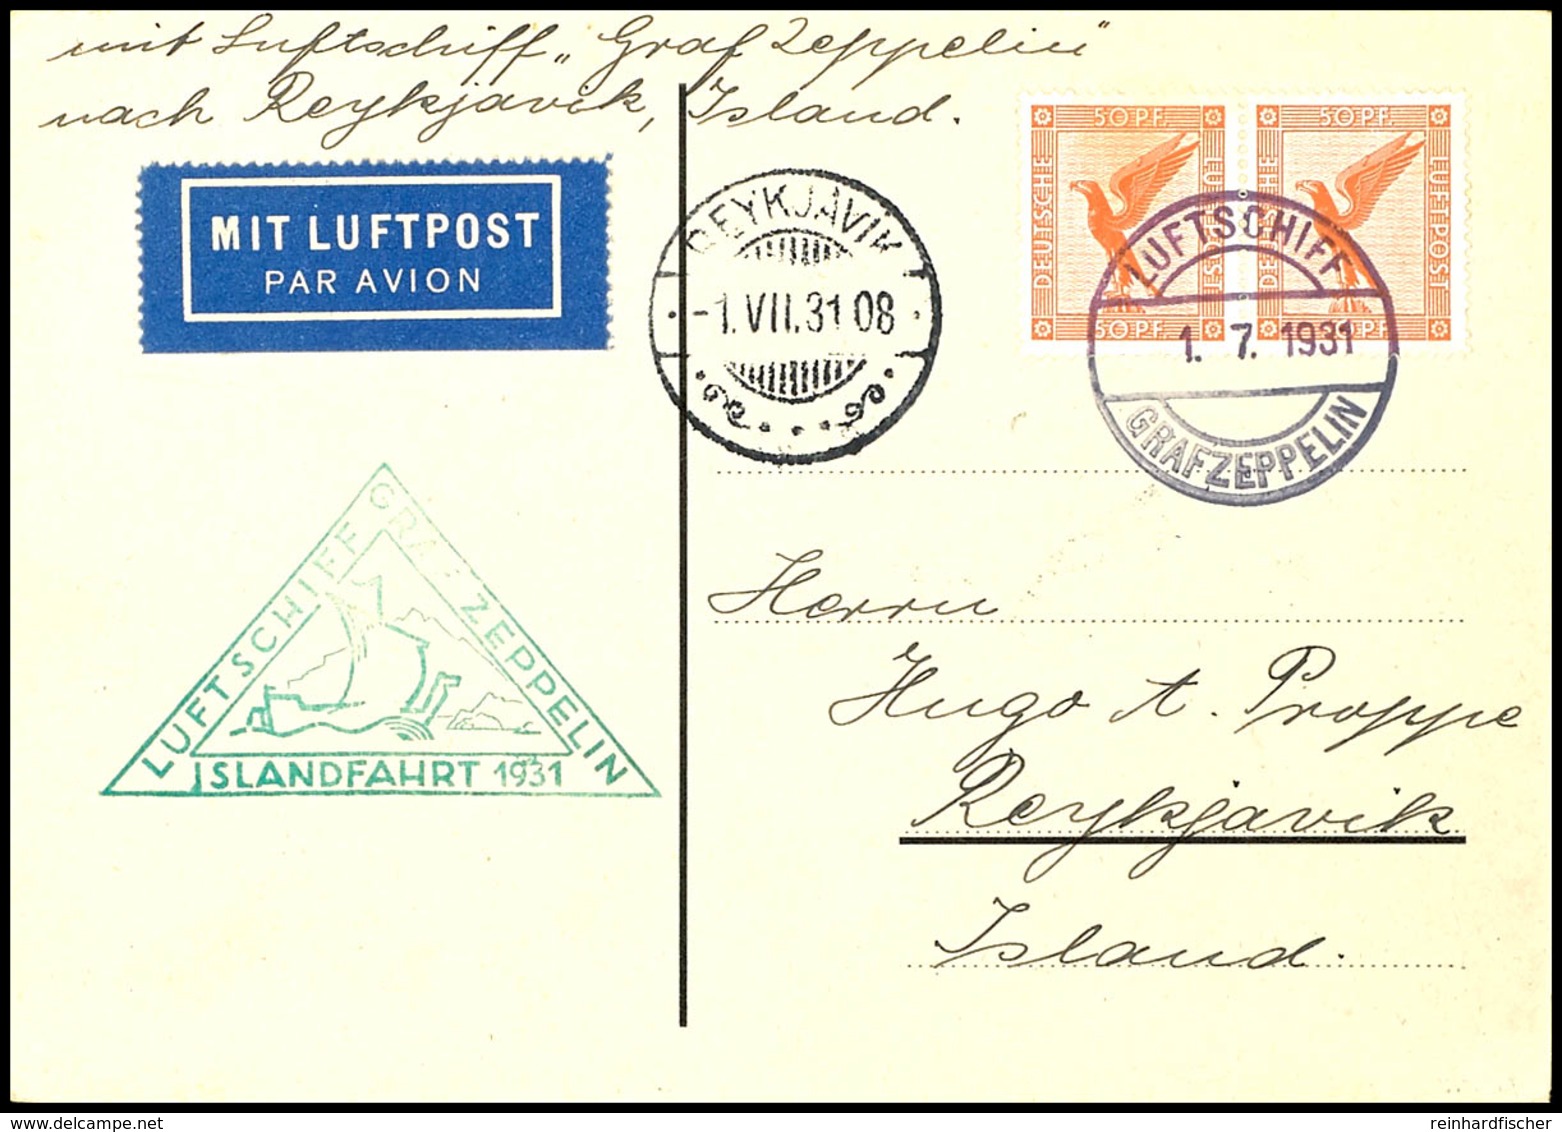 mit Luftschiff „Graf Zeppelin"
nach Reykjavik, Island.
MIT LUFTPOST
PAR AVION
REYKJAVIK
-1.VII.31 08
50 PF. 50 PF.
DEUTSCHE LUFTPOST DEUTSCHE LUFTPOST
50 PF. 50 PF.
LUFTSCHIFF
1. 7. 1931
GRAF ZEPPELIN
LUFTSCHIFF GRAF ZEPPELIN
ISLANDFAHRT 1931
Herrn
Hugo A. Proppe
Reykjavik
Island.
reinhardfischer